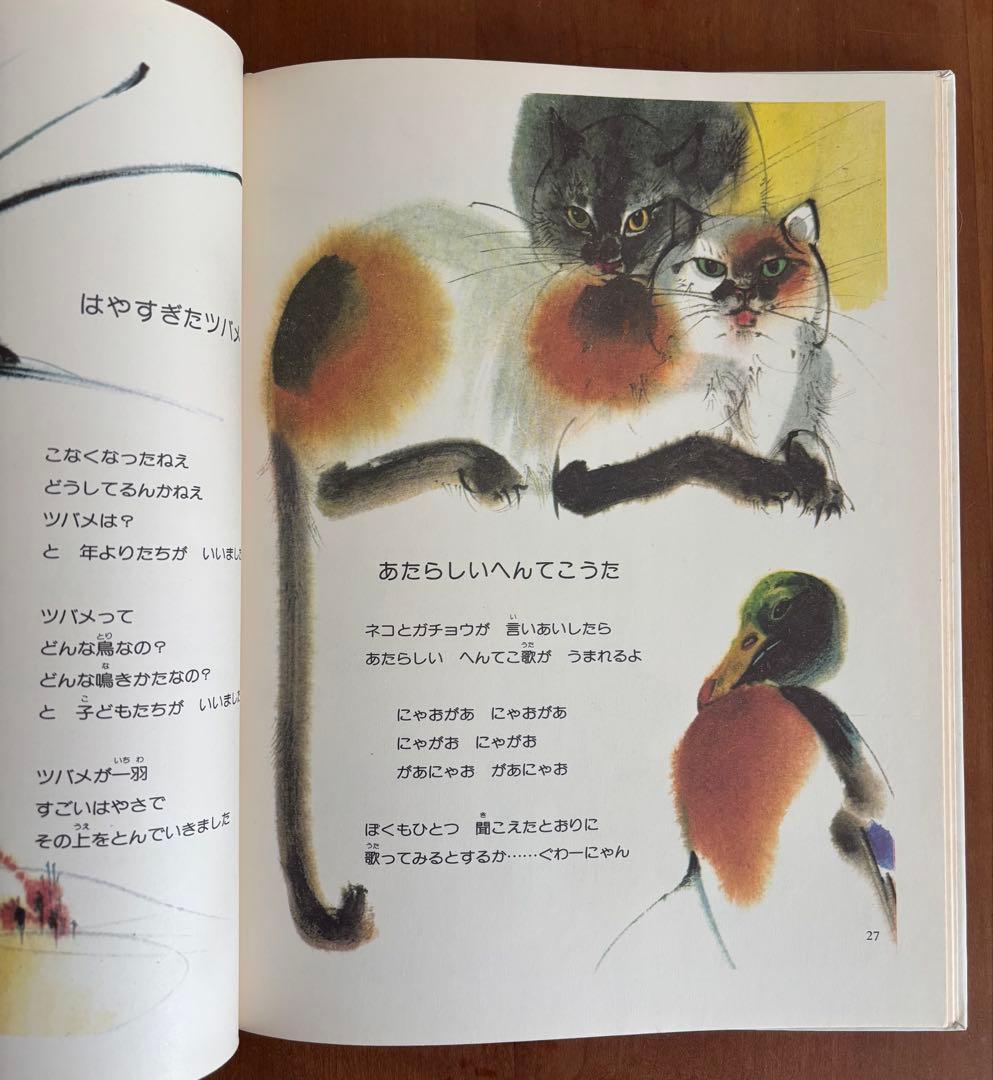 はやすぎたツバメ
こなくなったねえ
どうしてるんかねえ
ツバメは？
と　年よりたちが　いいました
ツバメって
どんな鳥なの？
どんな鳴きかたなの？
と　子どもたちが　いいました
ツバメが一羽
すごいはやさで
その上をとんでいきました
あたらしいへんてこうた
ネコとガチョウが　言いあいしたら
あたらしい　へんてこ歌が　うまれるよ
にゃおがあ　にゃおがあ
にゃがお　にゃがお
があにゃお　があにゃお
ぼくもひとつ　聞こえたとおりに
歌ってみるとするか……ぐわーにゃん
27